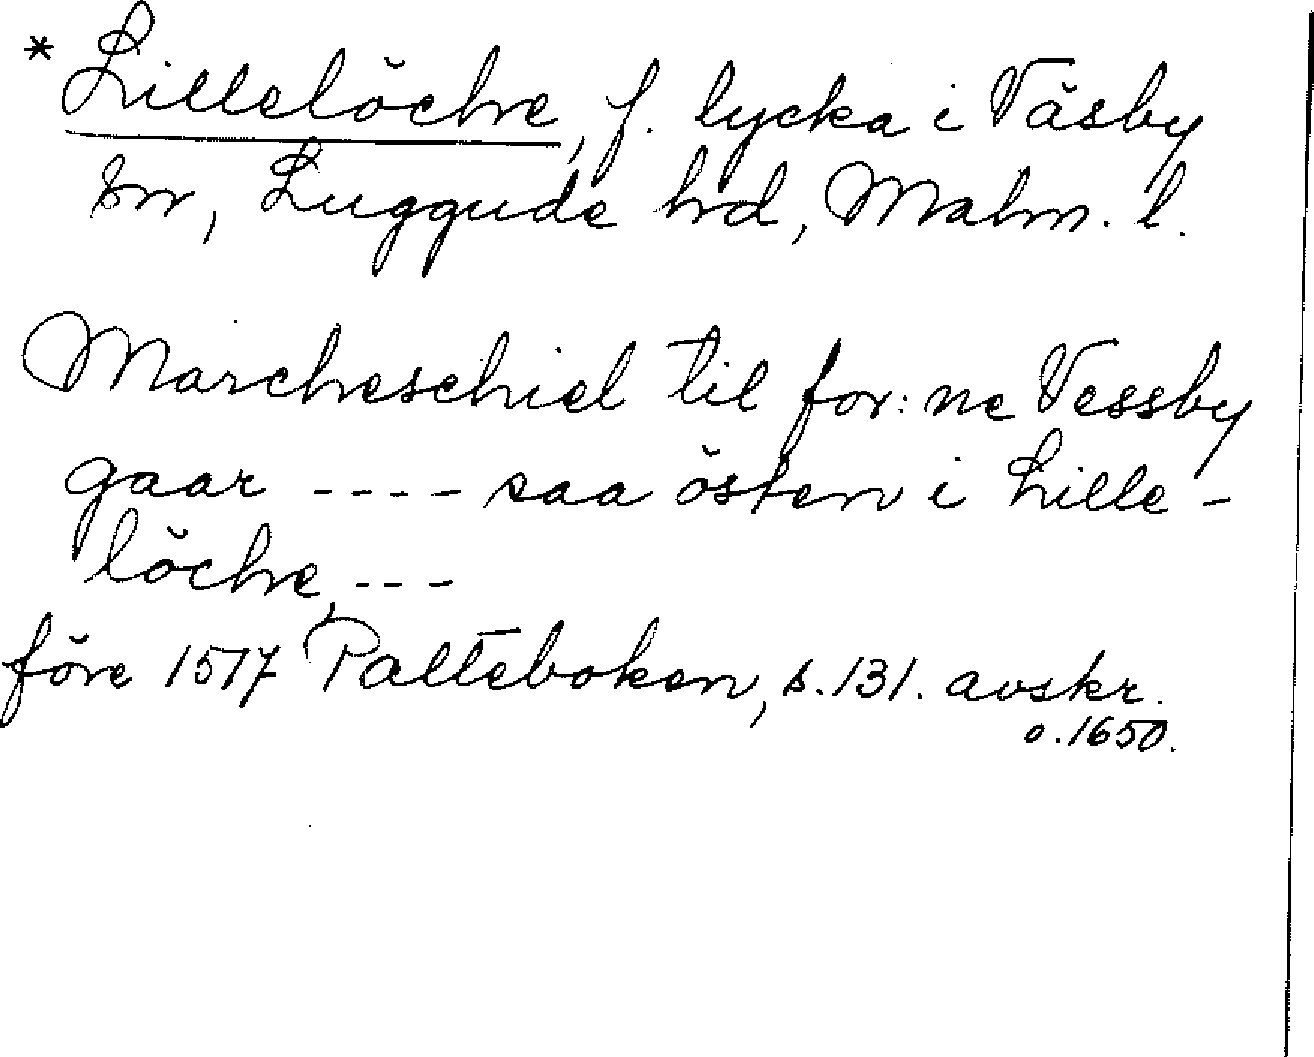 * Lillelöche, f. lycka i Väsby
sn, Luggude hd, Malm. l.
Marcheschiel til for: ne Vessby
gaar ---- saa östen i Lille-
löche, ---
före 1517 Palteboken, s. 131. avskr.
o. 1650.